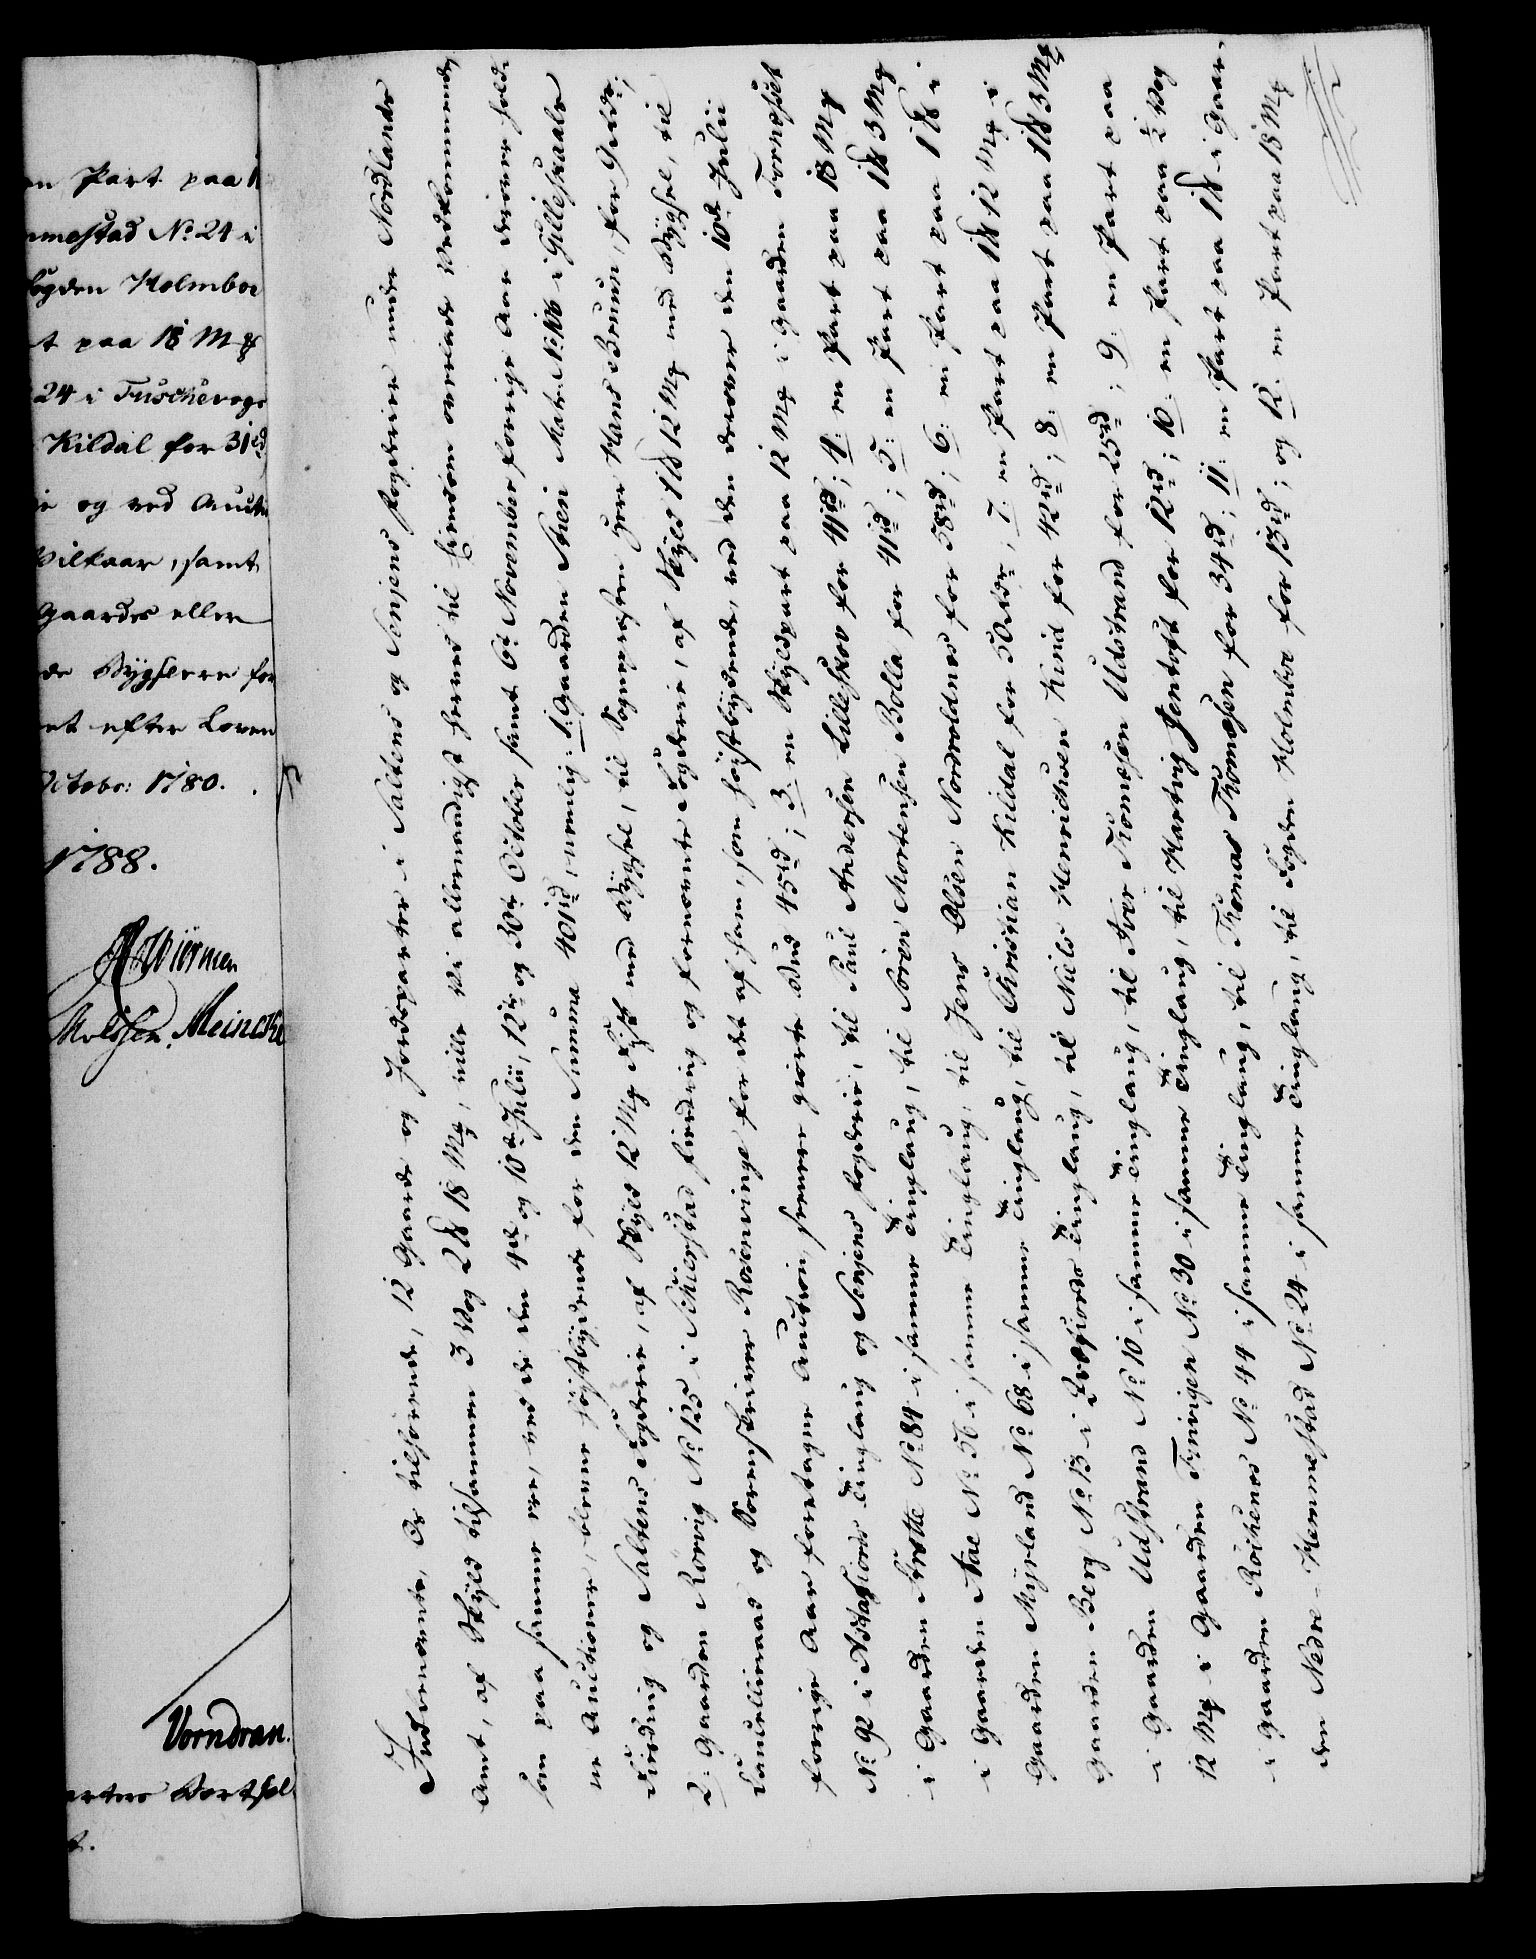 en Part paa 1
mmestad No 24 i
Fogden Holmboe
t paa 18 Mk
24 i Tuschevogs
Kildal for 31 rd
e og ved Aucti
Vilkaar, samt
Gaardes eller
de Bygslere for
et efter Loven
Octobr: 1780.
1788.
Wiörmen
Meincke
Vorndran.
t.
Indbenævnte, Os tilhørende, 12 Gaarde og Jordeparter i Saltens og Senjens Fogderier under Nordlands
Amt, af Skyld tilsammen 3 Vog 2 lb 18 Mk, ville Vi allernaadigst herved til Eiendom overlade Vedkommende
som paa samme ere, ved de den 4de og 10de Julii, 12te og 30te October samt 6te November forrige Aar derover hold-
ne Auctioner, blevne høystbydende for den Summa 401 rd, nemlig: 1: Gaarden Steen Matr: No 106 i Gilleskaals
Fierding og Saltens Fogderie, af Skyld 12 Mk Fisk med Bygsel, til Sognepræsten Herr Hans Bruun, for 9 rdr;
2: Gaarden Rørvig No 125 i Schierstad Fierding og fornævnte Fogderie, af Skyld 1 lb 12 Mk med Bygsel, til
Cancelliraad og Sorenskriver Rosenvinge for det af ham, som høystbydende, ved den derover den 10de Julii
forrige Aar foretagne Auction, herpaa giorte Bud 45 rd; 3: en Skyldpart paa 12 Mk i Gaarden Fornæset
No 92 i Astafiords Tinglaug og Senjens Fogderie, til Paul Andersen Lilleskov for 41 rd; 4: en Part paa 18 Mk
i Gaarden Trotte No 84 i samme Tinglaug, til Søren Mortensen Bolla for 41 rd; 5: en Part paa 1 lb 3 Mk
i Gaarden Aae No 56 i samme Tinglaug, til Jens Olsen Nordroldnes for 58 rd; 6: en Part paa 1 lb i
Gaarden Myrland No 68 i samme Tinglaug, til Christian Kildal for 50 rdr; 7: en Part paa 1 lb 12 Mk i
Gaarden Berg No 13 i Qvæfiords Tinglaug, til Niels Henrichsen Kind for 42 rd; 8: en Part paa 1 lb 3 Mk
i Gaarden Udstrand No 10 i samme Tinglaug, til Iver Thomesen Udstrand for 25 rd; 9: en Part paa
12 Mk i Gaarden Finvigen No 30 i samme Tinglaug, til Hartvig Jentoft for 12 rd; 10: en Part paa ½ Vog
i Gaarden Röichenes No 44 i samme Tinglaug, til Thomas Thomesen for 34 rd; 11: en Part paa 1 lb i Gaar-
den Nedre-Hemmestad No 24 i samme Tinglaug, til Fogden Holmboe for 13 rd; og 12: en Part paa 18 Mk